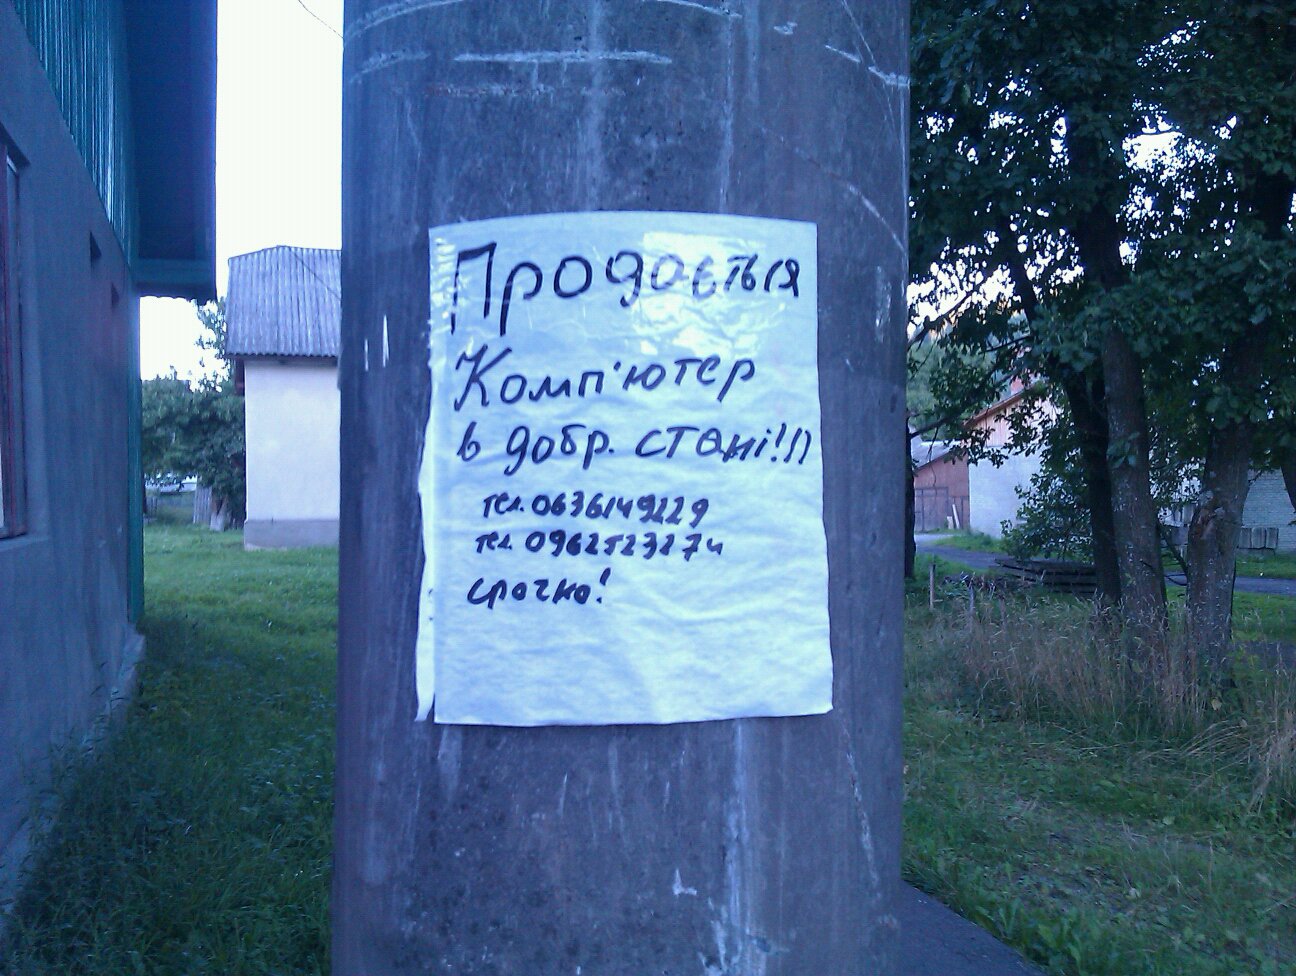 Продається
Комп'ютер
в добр. стані!!!
тел. 0636149229
тел. 0962523274
срочно!